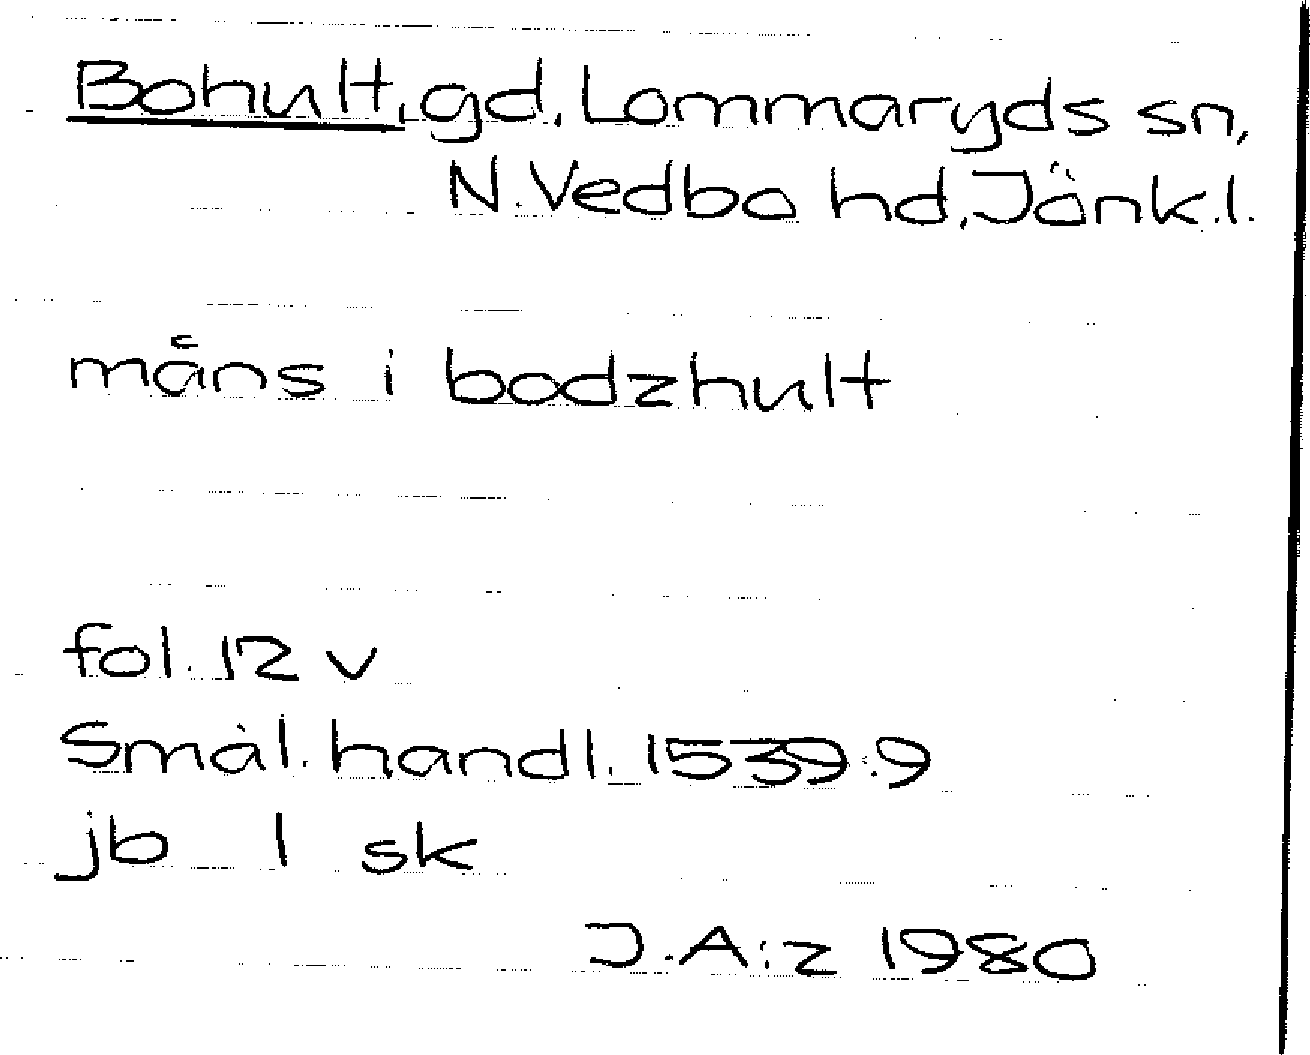 Bohult, gd, Lommaryds sn,
N. Vedbo hd, Jönk.l.
måns i bodzhult
fol. 12 v
Smål. handl. 1539:9
jb 1 sk
J.A:z 1980